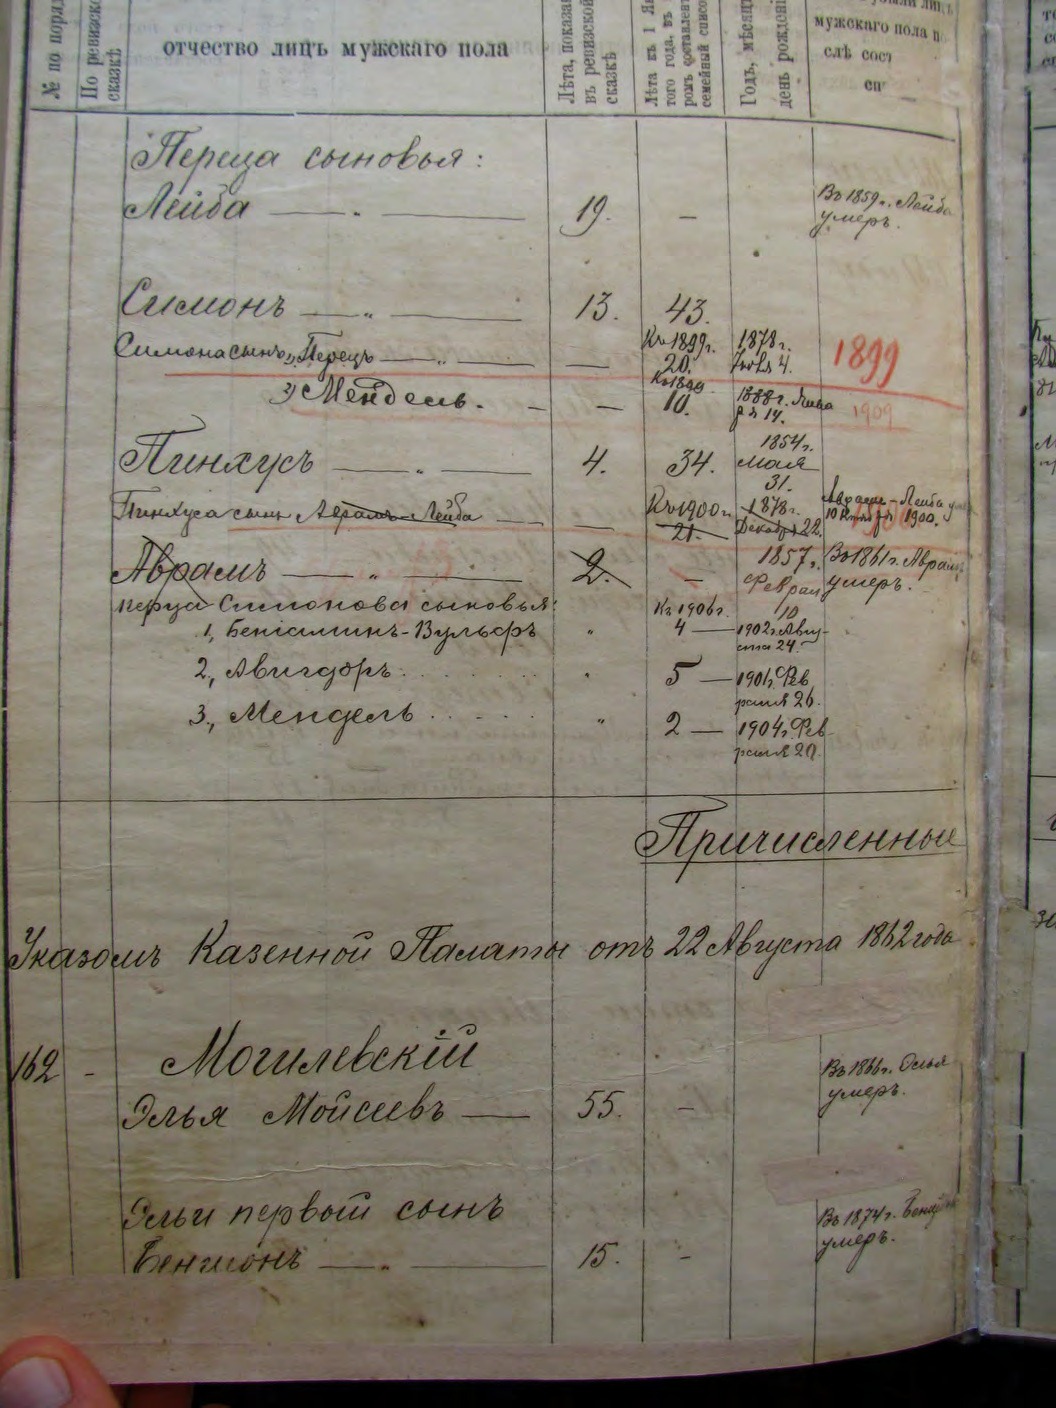 № по поряд
По ревизско
сказкѣ
отчество лицъ мужскаго пола
Лѣта, показан
въ ревизской
сказкѣ
Лѣта къ 1 Ян
того года, въ
ромъ составлен
семейный списо
Годъ, мѣсяц
день рожденi
мужскаго пола п
слѣ сост
сп
Переца сыновья:
Лейба — „ — 19. — Въ 1859 г. Лейба
умеръ.
Симонъ — „ — 13. 43.
Симона сынъ 1, Перецъ — „ — — Къ 1899 г. 1878 г. 1899
20. Iюля 4.
2, Мендель. — — Къ 1899 1888 г. 1909
10. 14.
Пинхусъ — „ — 4. 34. 1854 г.
Мая
31.
Пинхуса сынъ Аврамъ-Лейба — — Къ 1900 г. 1878 г. Аврамъ-Лейба
21. Декабря 22. 1900.
Аврамъ — „ — 2. — 1857 г. Въ 1861 г. Аврамъ
Феврал умеръ.
10
Перца Симонова сыновья: Къ 1906 г.
1, Бенiаминъ-Вульфъ „ 4 — 1902 г. Авгу-
ста 24.
2, Авигдоръ „ 5 — 1901 г. Фев
раля 26.
3, Мендель „ 2 — 1904 г. Фев-
раля 20.
Причисленные
Указомъ Казенной Палаты отъ 22 Августа 1862 года
162 - Могилевскiй
Элья Мойсеевъ — 55. — Въ 1866 г. Элья
умеръ.
Эльи первой сынъ
Бенцiонъ — „ — 15. — Въ 1874 г.
умеръ.